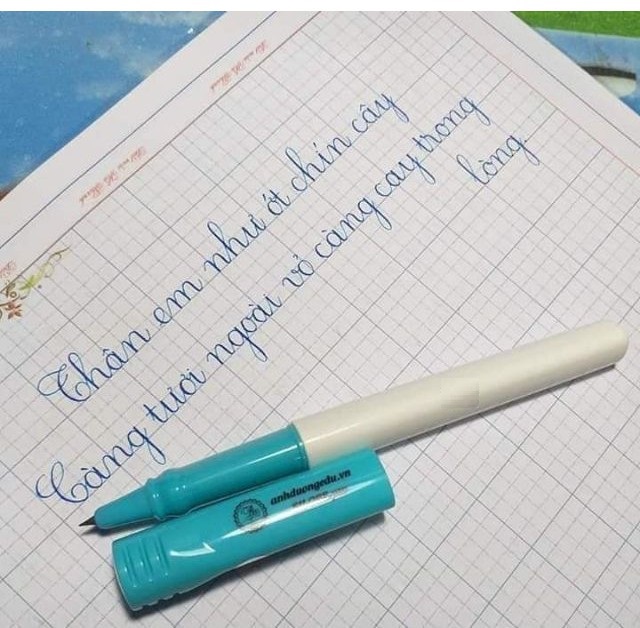 Thân em như ớt chín cây
Càng tươi ngoài vỏ càng cay trong
lòng
anhduongedu.vn